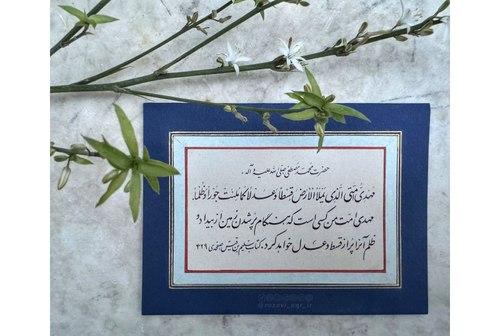 حضرت محمد مصطفی صلی الله علیه و آله :
مهدی امتی الذی یملأ الارض قسطا و عدلا کما ملئت جورا و ظلما.
مهدی امت من کسی است که هنگام پر شدن زمین از بیداد و
ظلم آنرا پر از قسط و عدل خواهد کرد. کتاب سلیم بن قیس صفحه‌ی ۴۲۹
@rozavi_aqr_ir